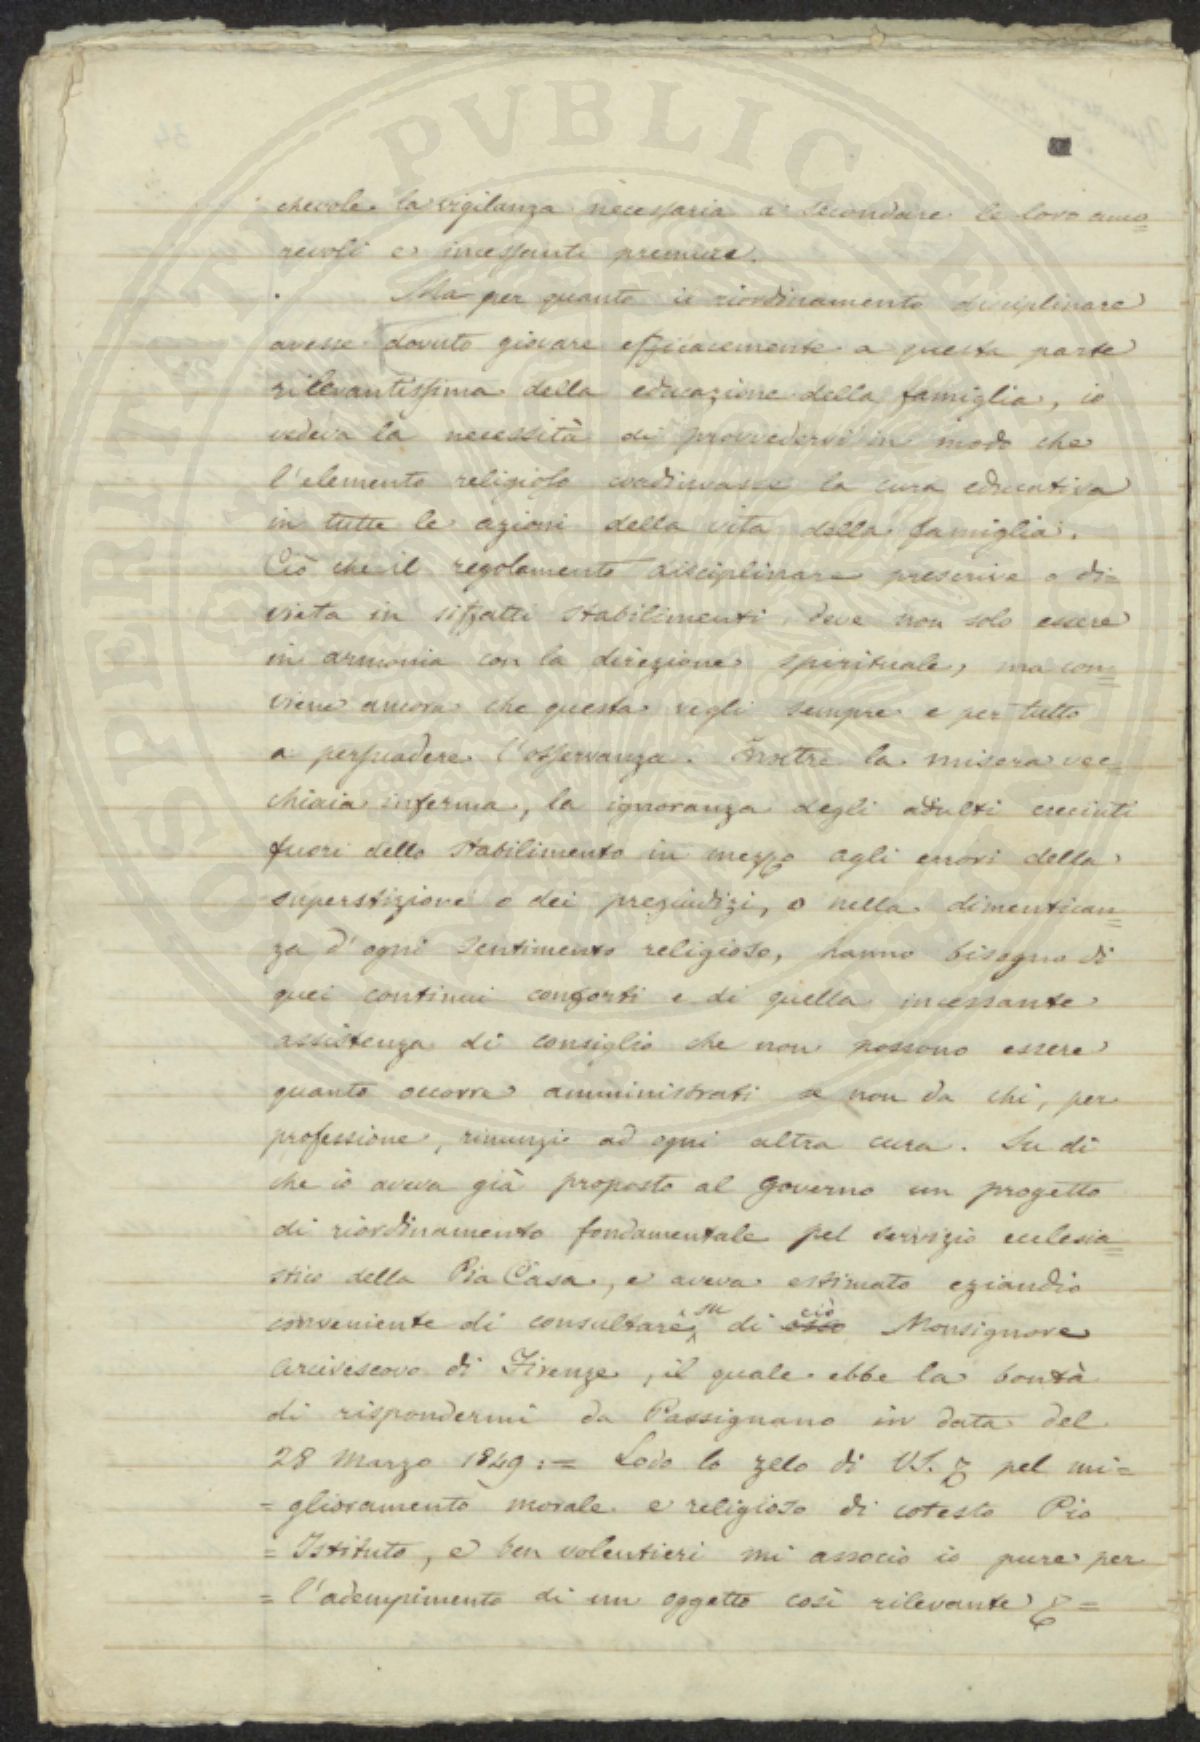 chevole la vigilanza necessaria a secondare le loro amo=
revoli e incessanti premure.
Ma per quanto il riordinamento disciplinare
avesse dovuto giovare efficacemente a questa parte
rilevantissima della educazione della famiglia, io
vedeva la necessità di provvedervi in modo che
l'elemento religioso coordinasse la cura educativa
in tutte le azioni della vita della famiglia.
Ciò che il regolamento disciplinare prescrive o di=
vieta in siffatti stabilimenti, deve non solo essere
in armonia con la direzione spirituale, ma con=
viene ancora che questa vegli sempre e per tutto
a persuadere l'osservanza. Inoltre la misera vec=
chiaia inferma, la ignoranza degli adulti cresciuti
fuori dello stabilimento in mezzo agli errori della
superstizione e dei pregiudizi, o nella dimentican=
za d'ogni sentimento religioso, hanno bisogno di
quei continui conforti e di quella incessante
assistenza di consiglio che non possono essere
quanto occorre amministrati se non da chi, per
professione, rinunzi ad ogni altra cura. Su di
che io aveva già proposto al Governo un progetto
di riordinamento fondamentale pel servizio ecclesia=
stico della Pia Casa, e aveva estimato eziandio
conveniente di consultare su di esso ciò Monsignore
Arcivescovo di Firenze, il quale ebbe la bontà
di rispondermi da Passignano in data del
28 Marzo 1849:= Lodo lo zelo di V.S. pel mi=
= glioramento morale e religioso di cotesto Pio
= Istituto, e ben volentieri mi associo io pure per
= l'adempimento di un oggetto così rilevante =
PROSPERITATI PUBLICAE AUGENDAE